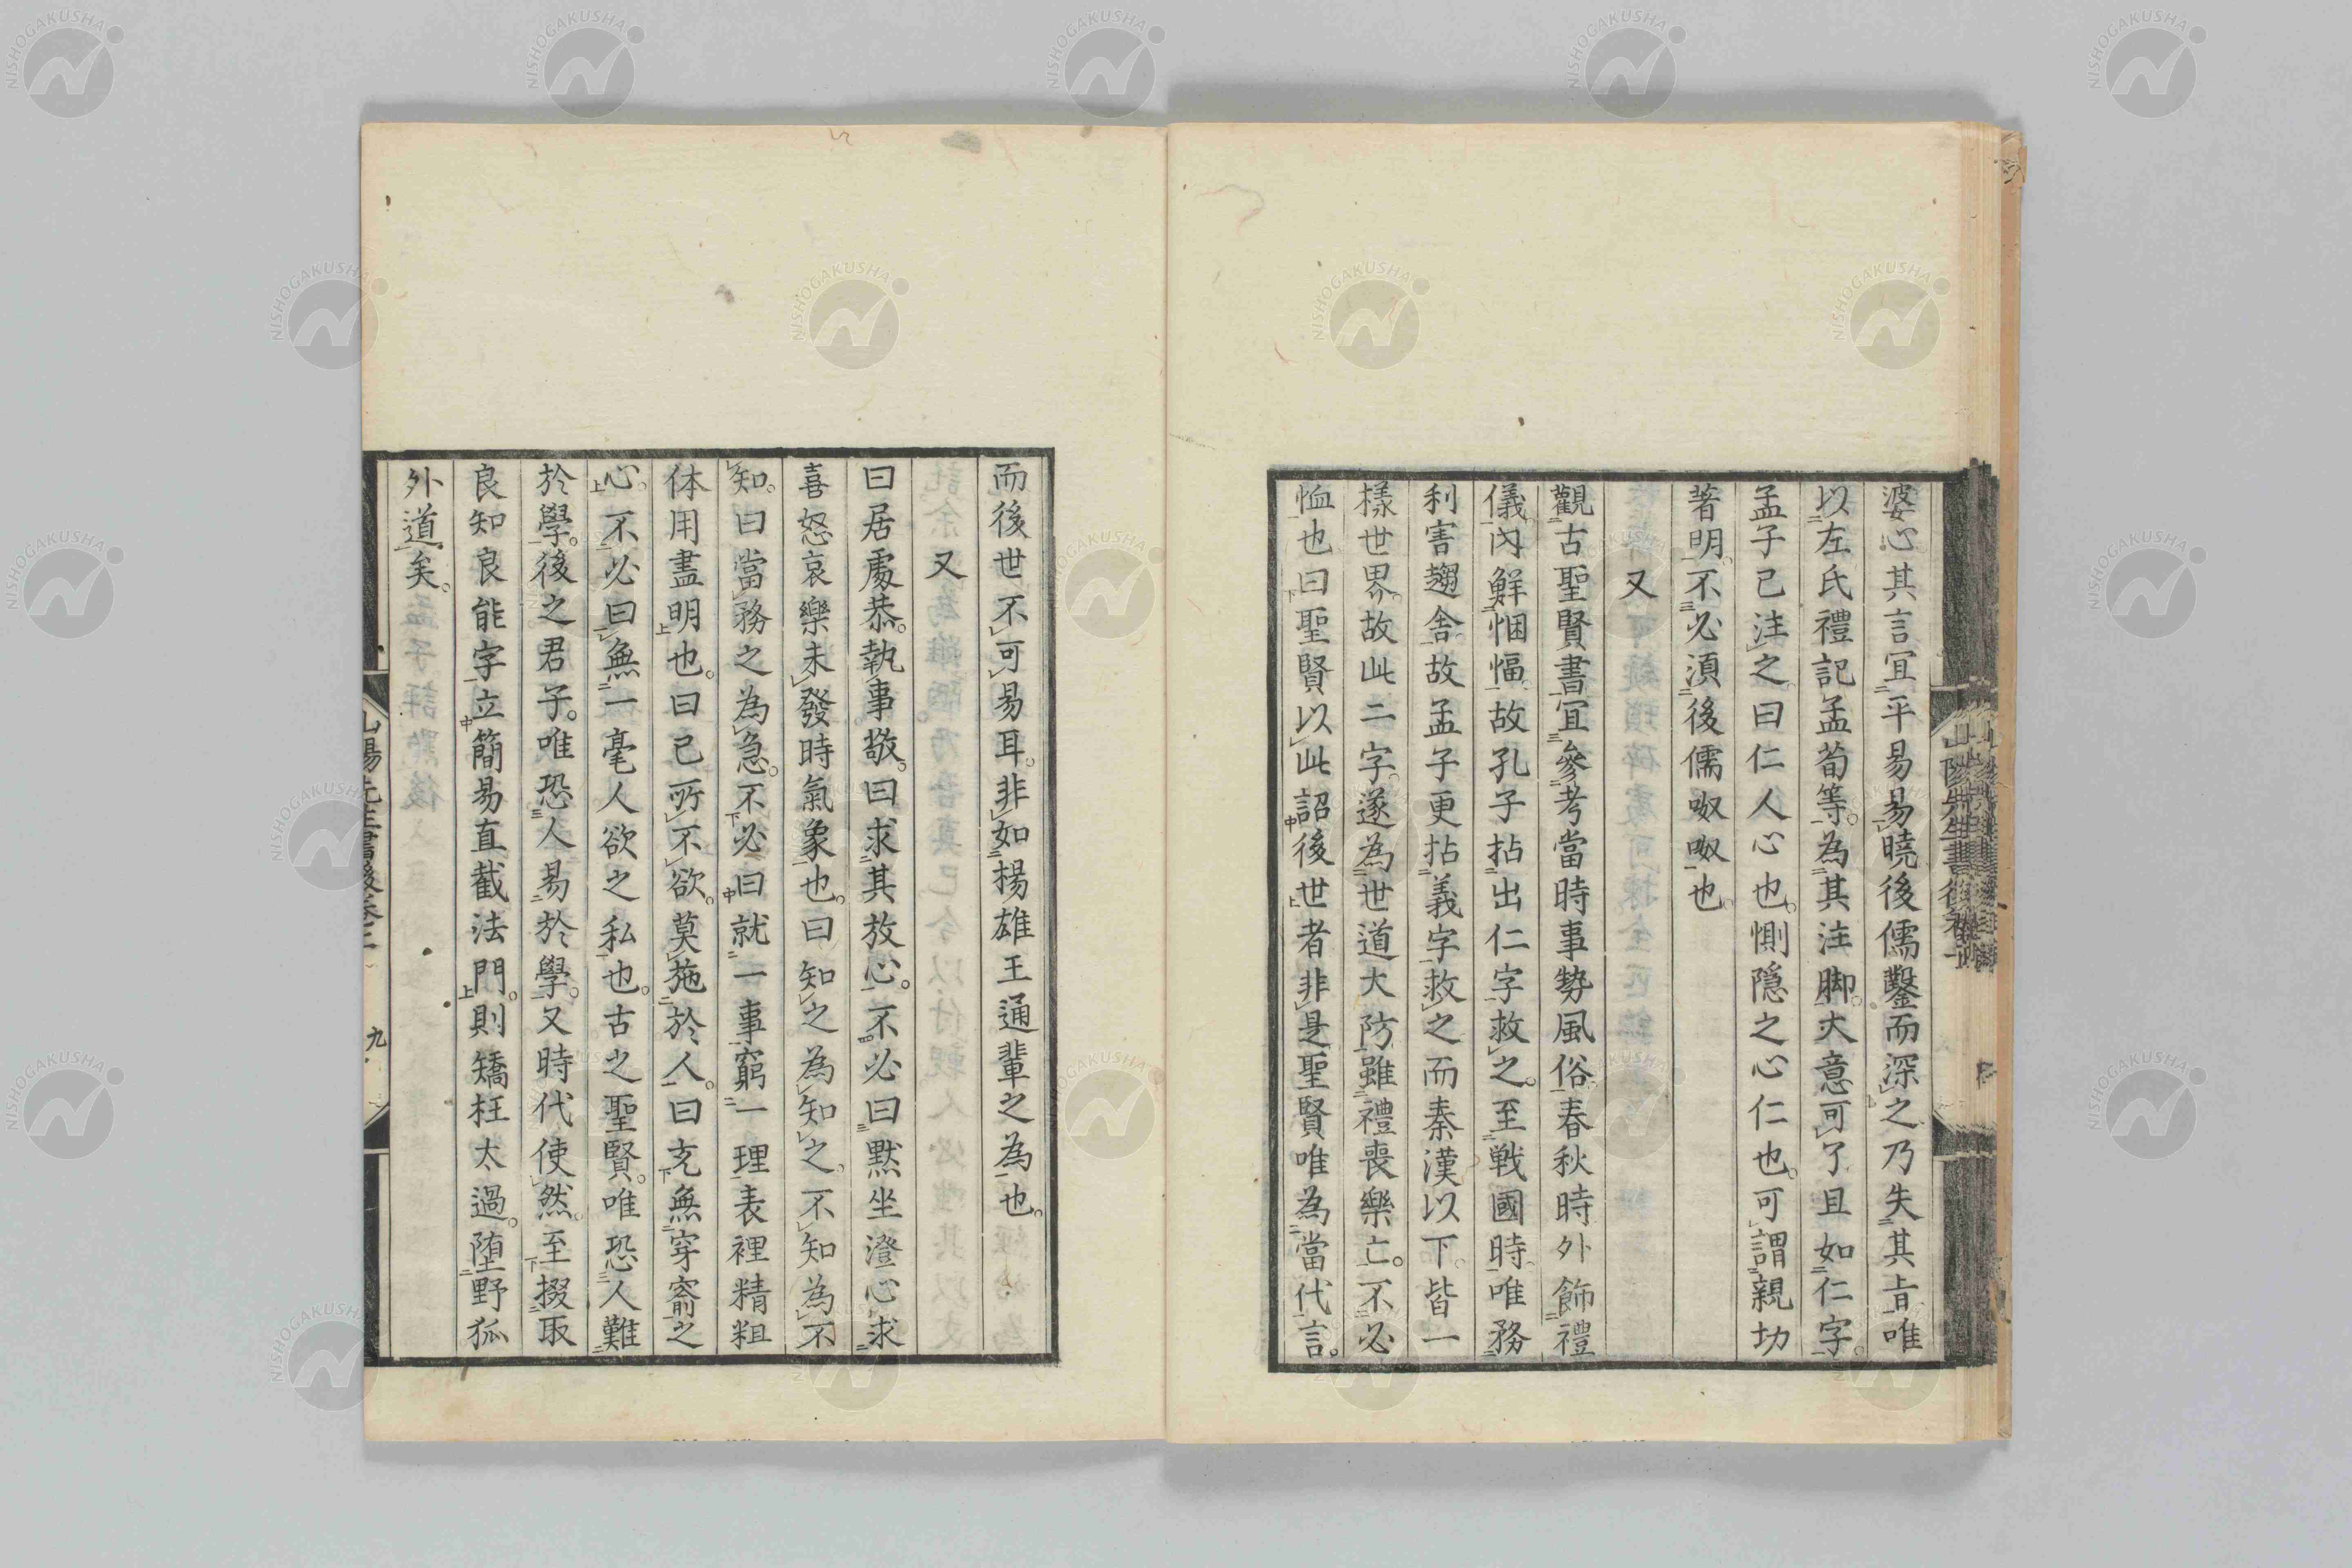 婆心其言宜平易易曉後儒鑿而深之乃失其旨唯
以左氏禮記孟荀等為其注脚大意可了且如仁字
孟子已注之曰仁人心也惻隠之心仁也可謂親切
著明不必湏後儒呶呶也
又
觀古聖賢書宜參考當時事勢風俗春秋時外飾禮
儀內鮮悃愊故孔子拈出仁字救之至戦國時唯務
利害趨舍故孟子更拈義字救之而秦漢以下皆一
樣世界故此二字遂為世道大防雖禮喪樂亡不必
恤也曰聖賢以此詔後世者非是聖賢唯為當代言
而後世不可易耳非如楊雄王通輩之為也
又
曰居處恭執事敬曰求其放心不必曰默坐澄心求
喜怒哀樂未發時氣象也曰知之為知之不知為不
知曰當務之為急不必曰就一事窮一理表裡精粗
体用盡明也曰己所不欲莫施於人曰充無穿窬之
心不必曰無一毫人欲之私也古之聖賢唯恐人難
於學後之君子唯恐人易於學又時代使然至掇取
良知良能字立簡易直截法門則矯枉太過堕野狐
外道矣
山陽先生書後卷上
九
NISHOGAKUSHA